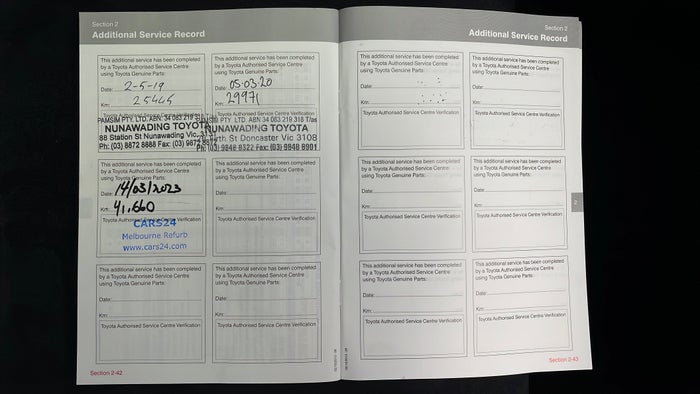 Section 2
Additional Service Record
This additional service has been completed
by a Toyota Authorised Service Centre
using Toyota Genuine Parts:
Date: 2-5-19
Km: 25445
Toyota Authorised Service Centre Verification
PAMSIM PTY. LTD. ABN: 34 063 219
NUNAWADING TOYOTA
88 Station St Nunawading Vic, 3131
Ph: (03) 8872 8888 Fax: (03) 9872
This additional service has been completed
by a Toyota Authorised Service Centre
using Toyota Genuine Parts:
Date: 05-03-20
Km: 29971
PTY. LTD. ABN 34 063 219 318 T/as
NUNAWADING TOYOTA
St Doncaster Vic 3108
Ph: (03) 9848 8322 Fax: (03) 9848 8901
This additional service has been completed
by a Toyota Authorised Service Centre
using Toyota Genuine Parts:
Date: 14/03/2023
Km: 41,660
Toyota Authorised Service Centre Verification
CARS24
Melbourne Refurb
www.cars24.com
This additional service has been completed
by a Toyota Authorised Service Centre
using Toyota Genuine Parts:
Date:
Km:
Toyota Authorised Service Centre Verification
This additional service has been completed
by a Toyota Authorised Service Centre
using Toyota Genuine Parts:
Date:
Km:
Toyota Authorised Service Centre Verification
This additional service has been completed
by a Toyota Authorised Service Centre
using Toyota Genuine Parts:
Date:
Km:
Toyota Authorised Service Centre Verification
Section 2-42
Section 2
Additional Service Record
This additional service has been completed
by a Toyota Authorised Service Centre
using Toyota Genuine Parts:
Date:
Km:
Toyota Authorised Service Centre Verification
This additional service has been completed
by a Toyota Authorised Service Centre
using Toyota Genuine Parts:
Date:
Km:
Toyota Authorised Service Centre Verification
This additional service has been completed
by a Toyota Authorised Service Centre
using Toyota Genuine Parts:
Date:
Km:
Toyota Authorised Service Centre Verification
This additional service has been completed
by a Toyota Authorised Service Centre
using Toyota Genuine Parts:
Date:
Km:
Toyota Authorised Service Centre Verification
2
This additional service has been completed
by a Toyota Authorised Service Centre
using Toyota Genuine Parts:
Date:
Km:
Toyota Authorised Service Centre Verification
This additional service has been completed
by a Toyota Authorised Service Centre
using Toyota Genuine Parts:
Date:
Km:
Toyota Authorised Service Centre Verification
Section 2-43